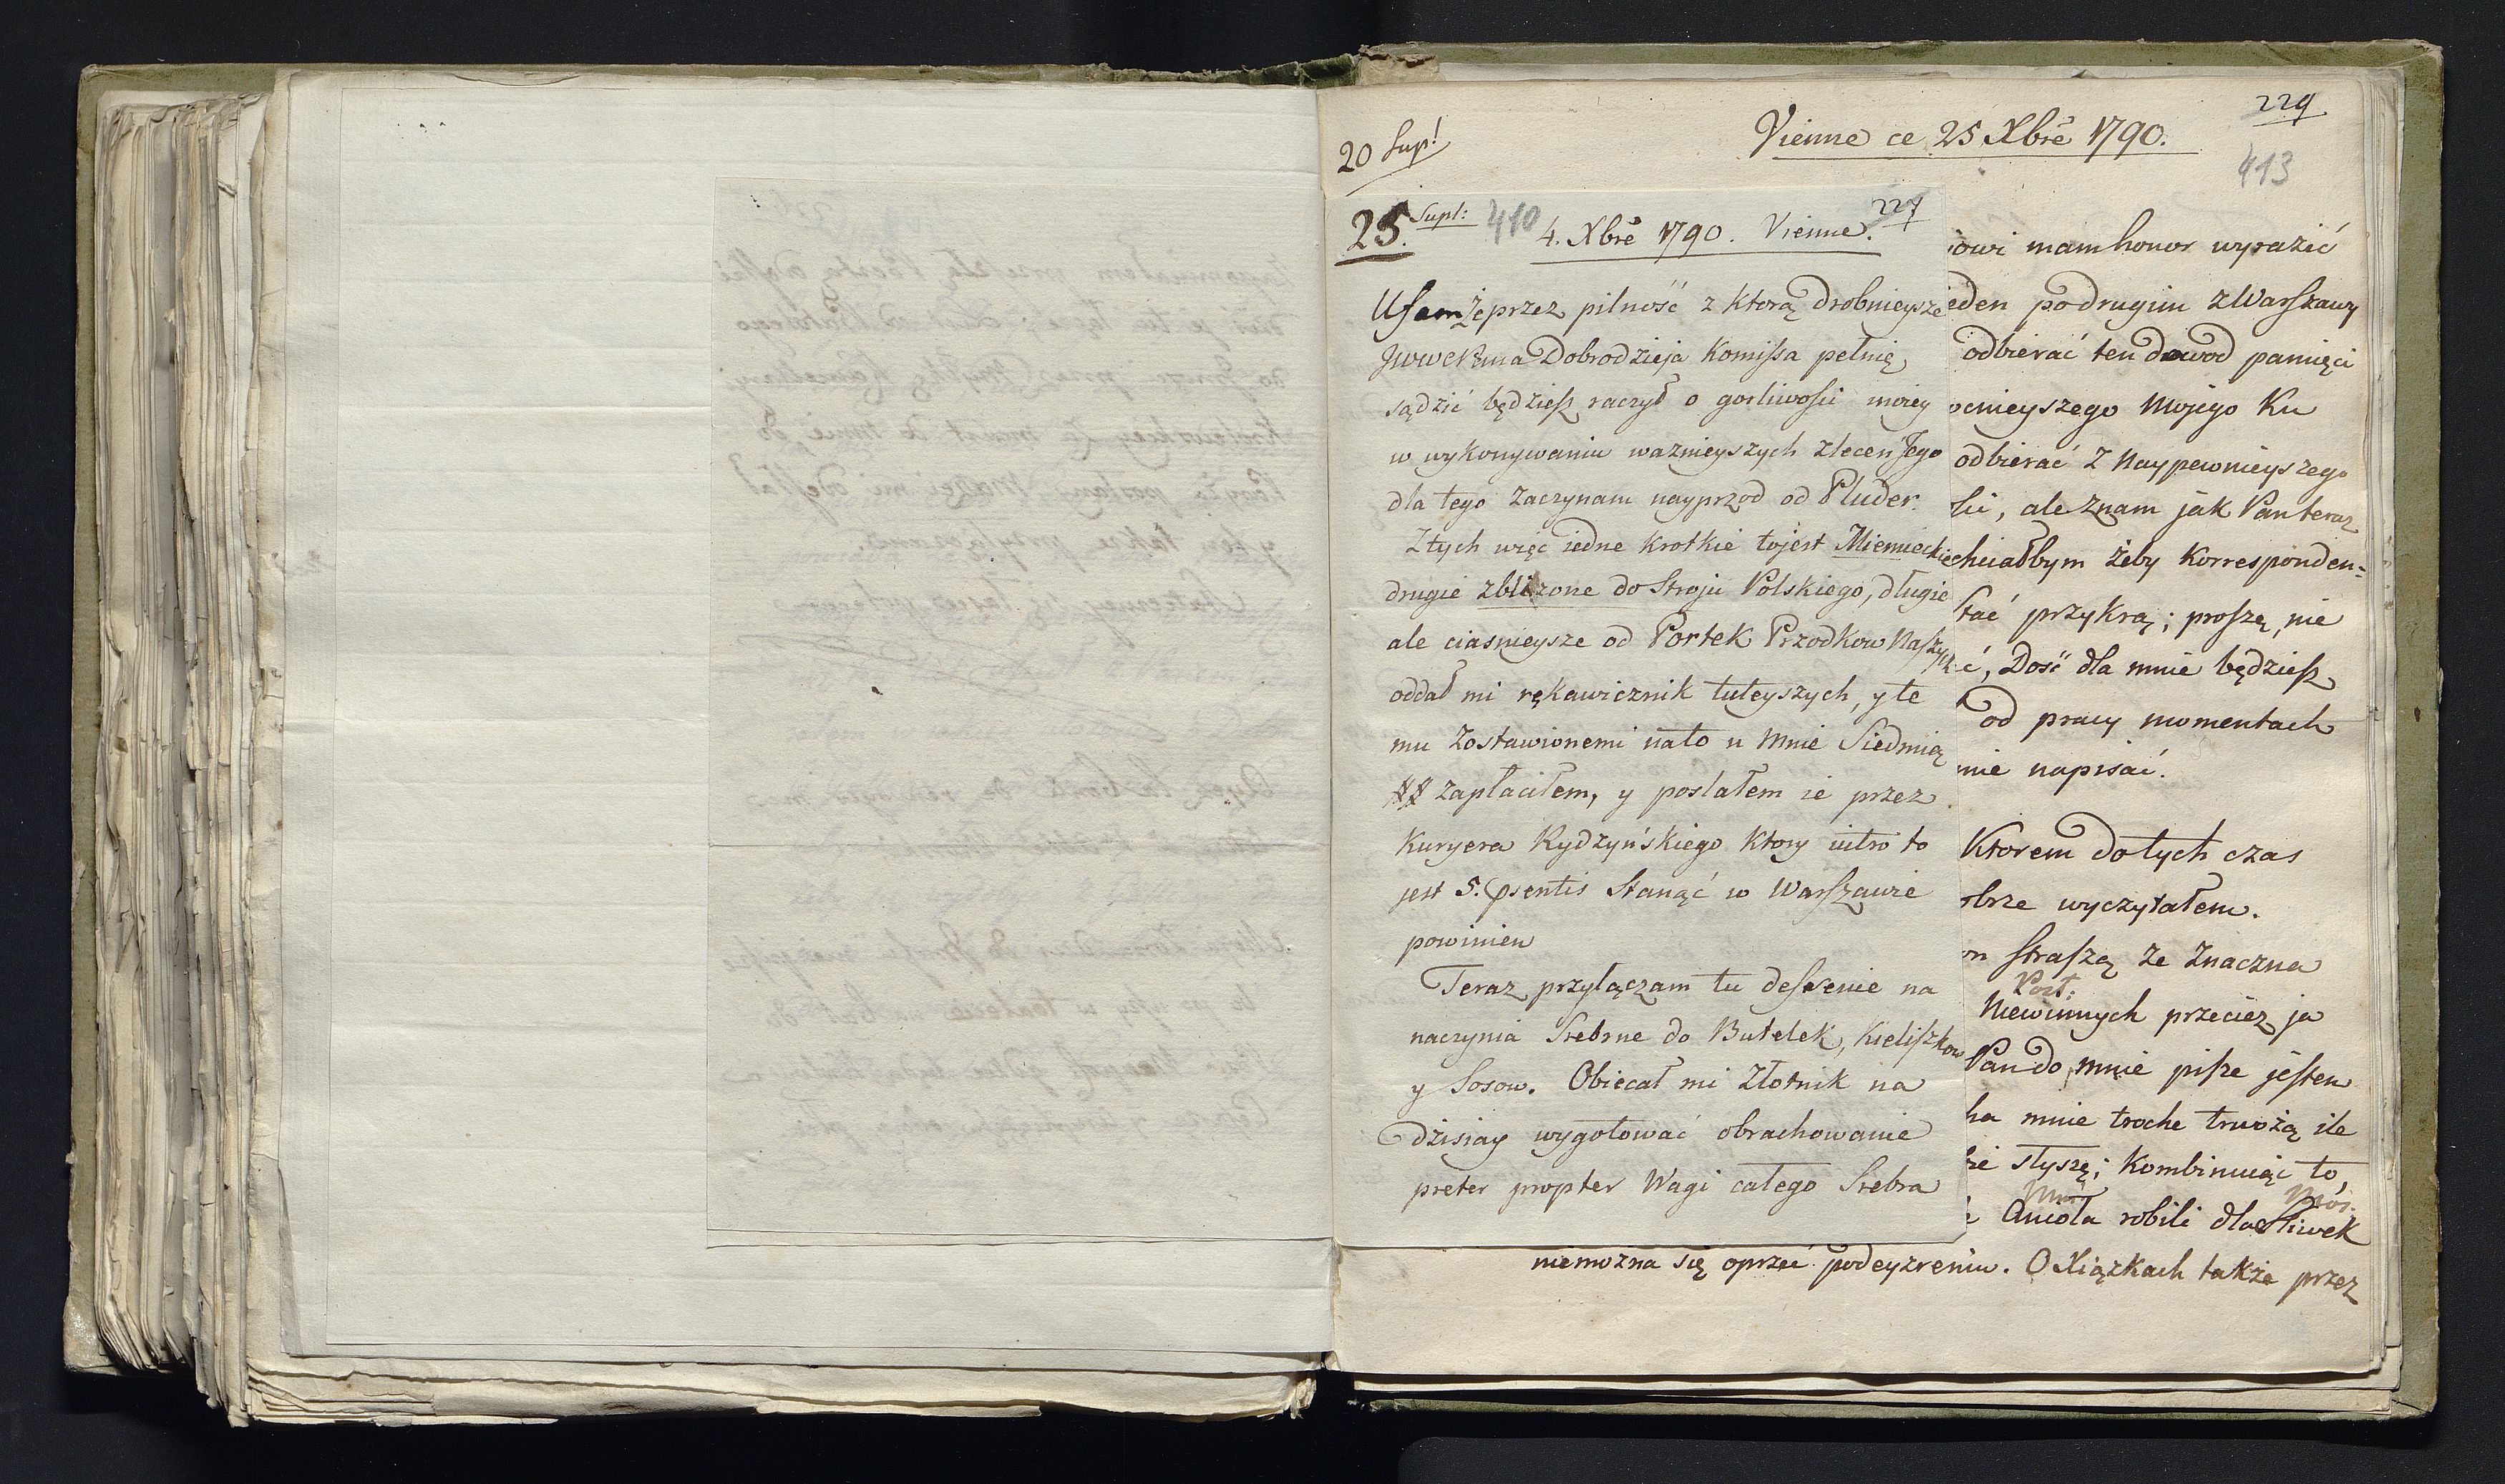 229
20 Supl
Vienne ce 25 Xbrė 1790.
413
25. Supl: 410 4. Xbrė 1790. Vienne. 227
Ufam że przez pilność z ktorą drobnieysze
Dobrodzieja Komissa pełnię,
sądzić będziesz raczył o gorliwości moiey
w wykonywaniu waznieyszych zleceń Jego
dla tego zaczynam nayprzod od Pluder.
Z tych więc iedne krotkie tojest Niemieckie
drugie zblizone do Stroju Polskiego, długie
ale ciasnieysze od Portek Przodkow Naszych
oddał mi rękawicznik tuteyszych, y te
mu zostawionemi nato u mnie Siedmią
## zapłaciłem, y posłałem ie przez
Kuryera Rydzyńskiego ktory iutro to
jest 5. psentis Stanąć w Warszawie
powinien
Teraz przyłączam tu desseinie na
naczynia Srebrne do Butelek, Kieliszkow
y Sosow. Obiecał mi Złotnik na
dzisiay wygotować obrachowanie
preter propter Wagi całego Srebra
iowi mam honor wyrazić
eden po drugim z Warszawy
odbierać ten dowod pamięci
ocnieyszego Mojego Ku
odbierać z Naypewnieyszego
ści, ale znam jak Pan teraz
chciałbym żeby Korresponden=
stać przykrą; proszę, nie
ć, Dość dla mnie będziesz
od pracy momentach
mnie napisać.
Ktorem do tych czas
obrze wyczytałem.
straszą że Znaczna
Post.
Niewinnych przecież ja
Pan do mnie pisze jestem
ha mnie troche trwożą ile
słyszę; Kombinuiąc to,
Mos.
Anioła robili dla Sliwek
niemożna się oprzeć podeyzreniu. O Xiązkach także przez